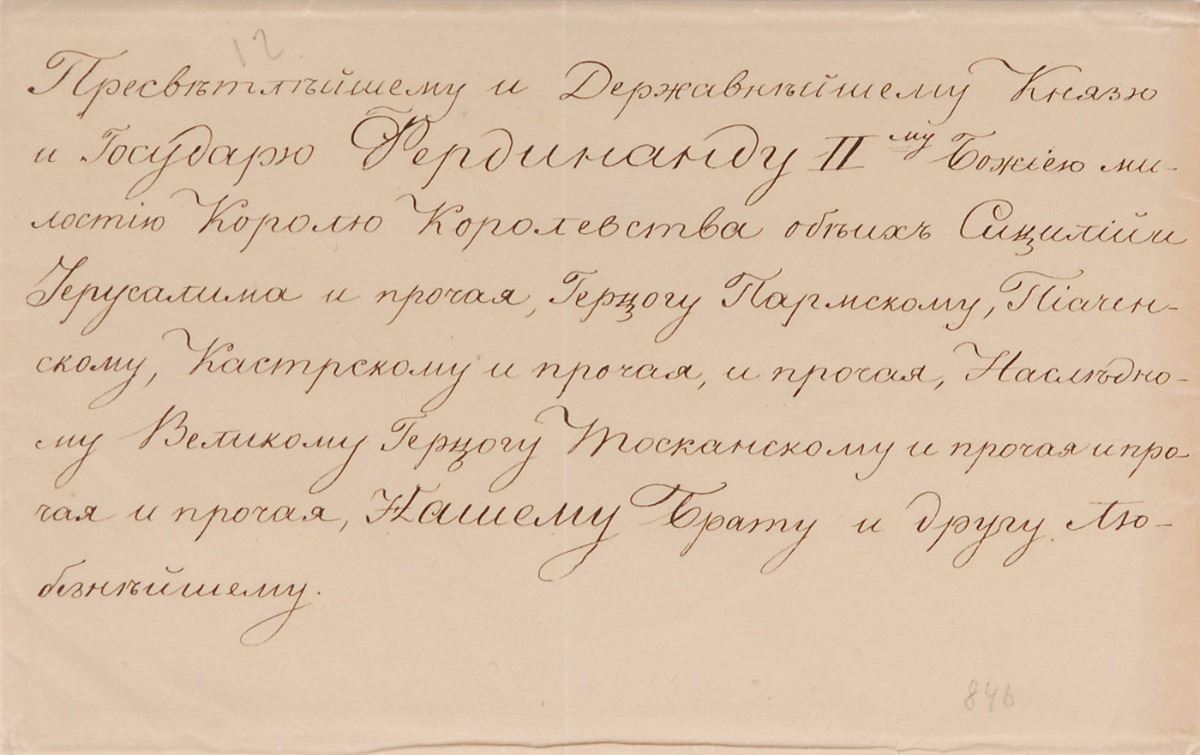 12
Пресвѣтлѣйшему и Державнѣйшему Князю
и Государю Фердинанду II му Божіею ми-
лостію Королю Королевства обѣихъ Сицилій и
Іерусалима и прочая, Герцогу Пармскому, Піачен-
скому, Кастрскому и прочая, и прочая, Наслѣдно-
му Великому Герцогу Тосканскому и прочая и про
чая и прочая, Нашему Брату и другу Лю-
безнѣйшему.
846